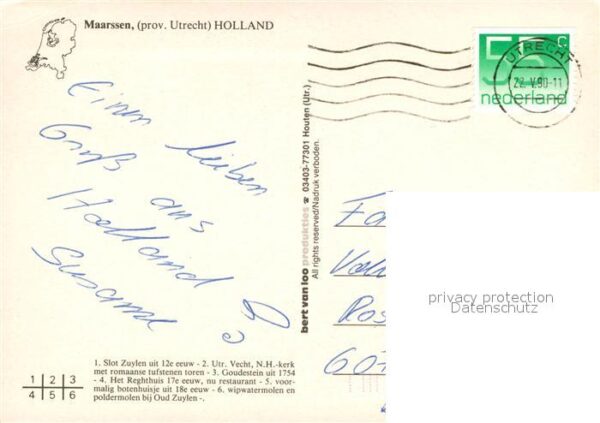 Maarssen, (prov. Utrecht) HOLLAND
55 c
nederland
UTRECHT
22. V. 90-11
Einen lieben
Gruß aus
Holland
Susanne
bert van loo produkties ☎ 03403-77301 Houten (Utr.)
All rights reserved/Nadruk verboden.
Fa
Ros
607
privacy protection
Datenschutz
1. Slot Zuylen uit 12e eeuw - 2. Utr. Vecht, N.H.-kerk
met romaanse tufstenen toren - 3. Goudestein uit 1754
- 4. Het Reghthuis 17e eeuw, nu restaurant - 5. voor-
malig botenhuisje uit 18e eeuw - 6. wipwatermolen en
poldermolen bij Oud Zuylen -.
1 2 3
4 5 6